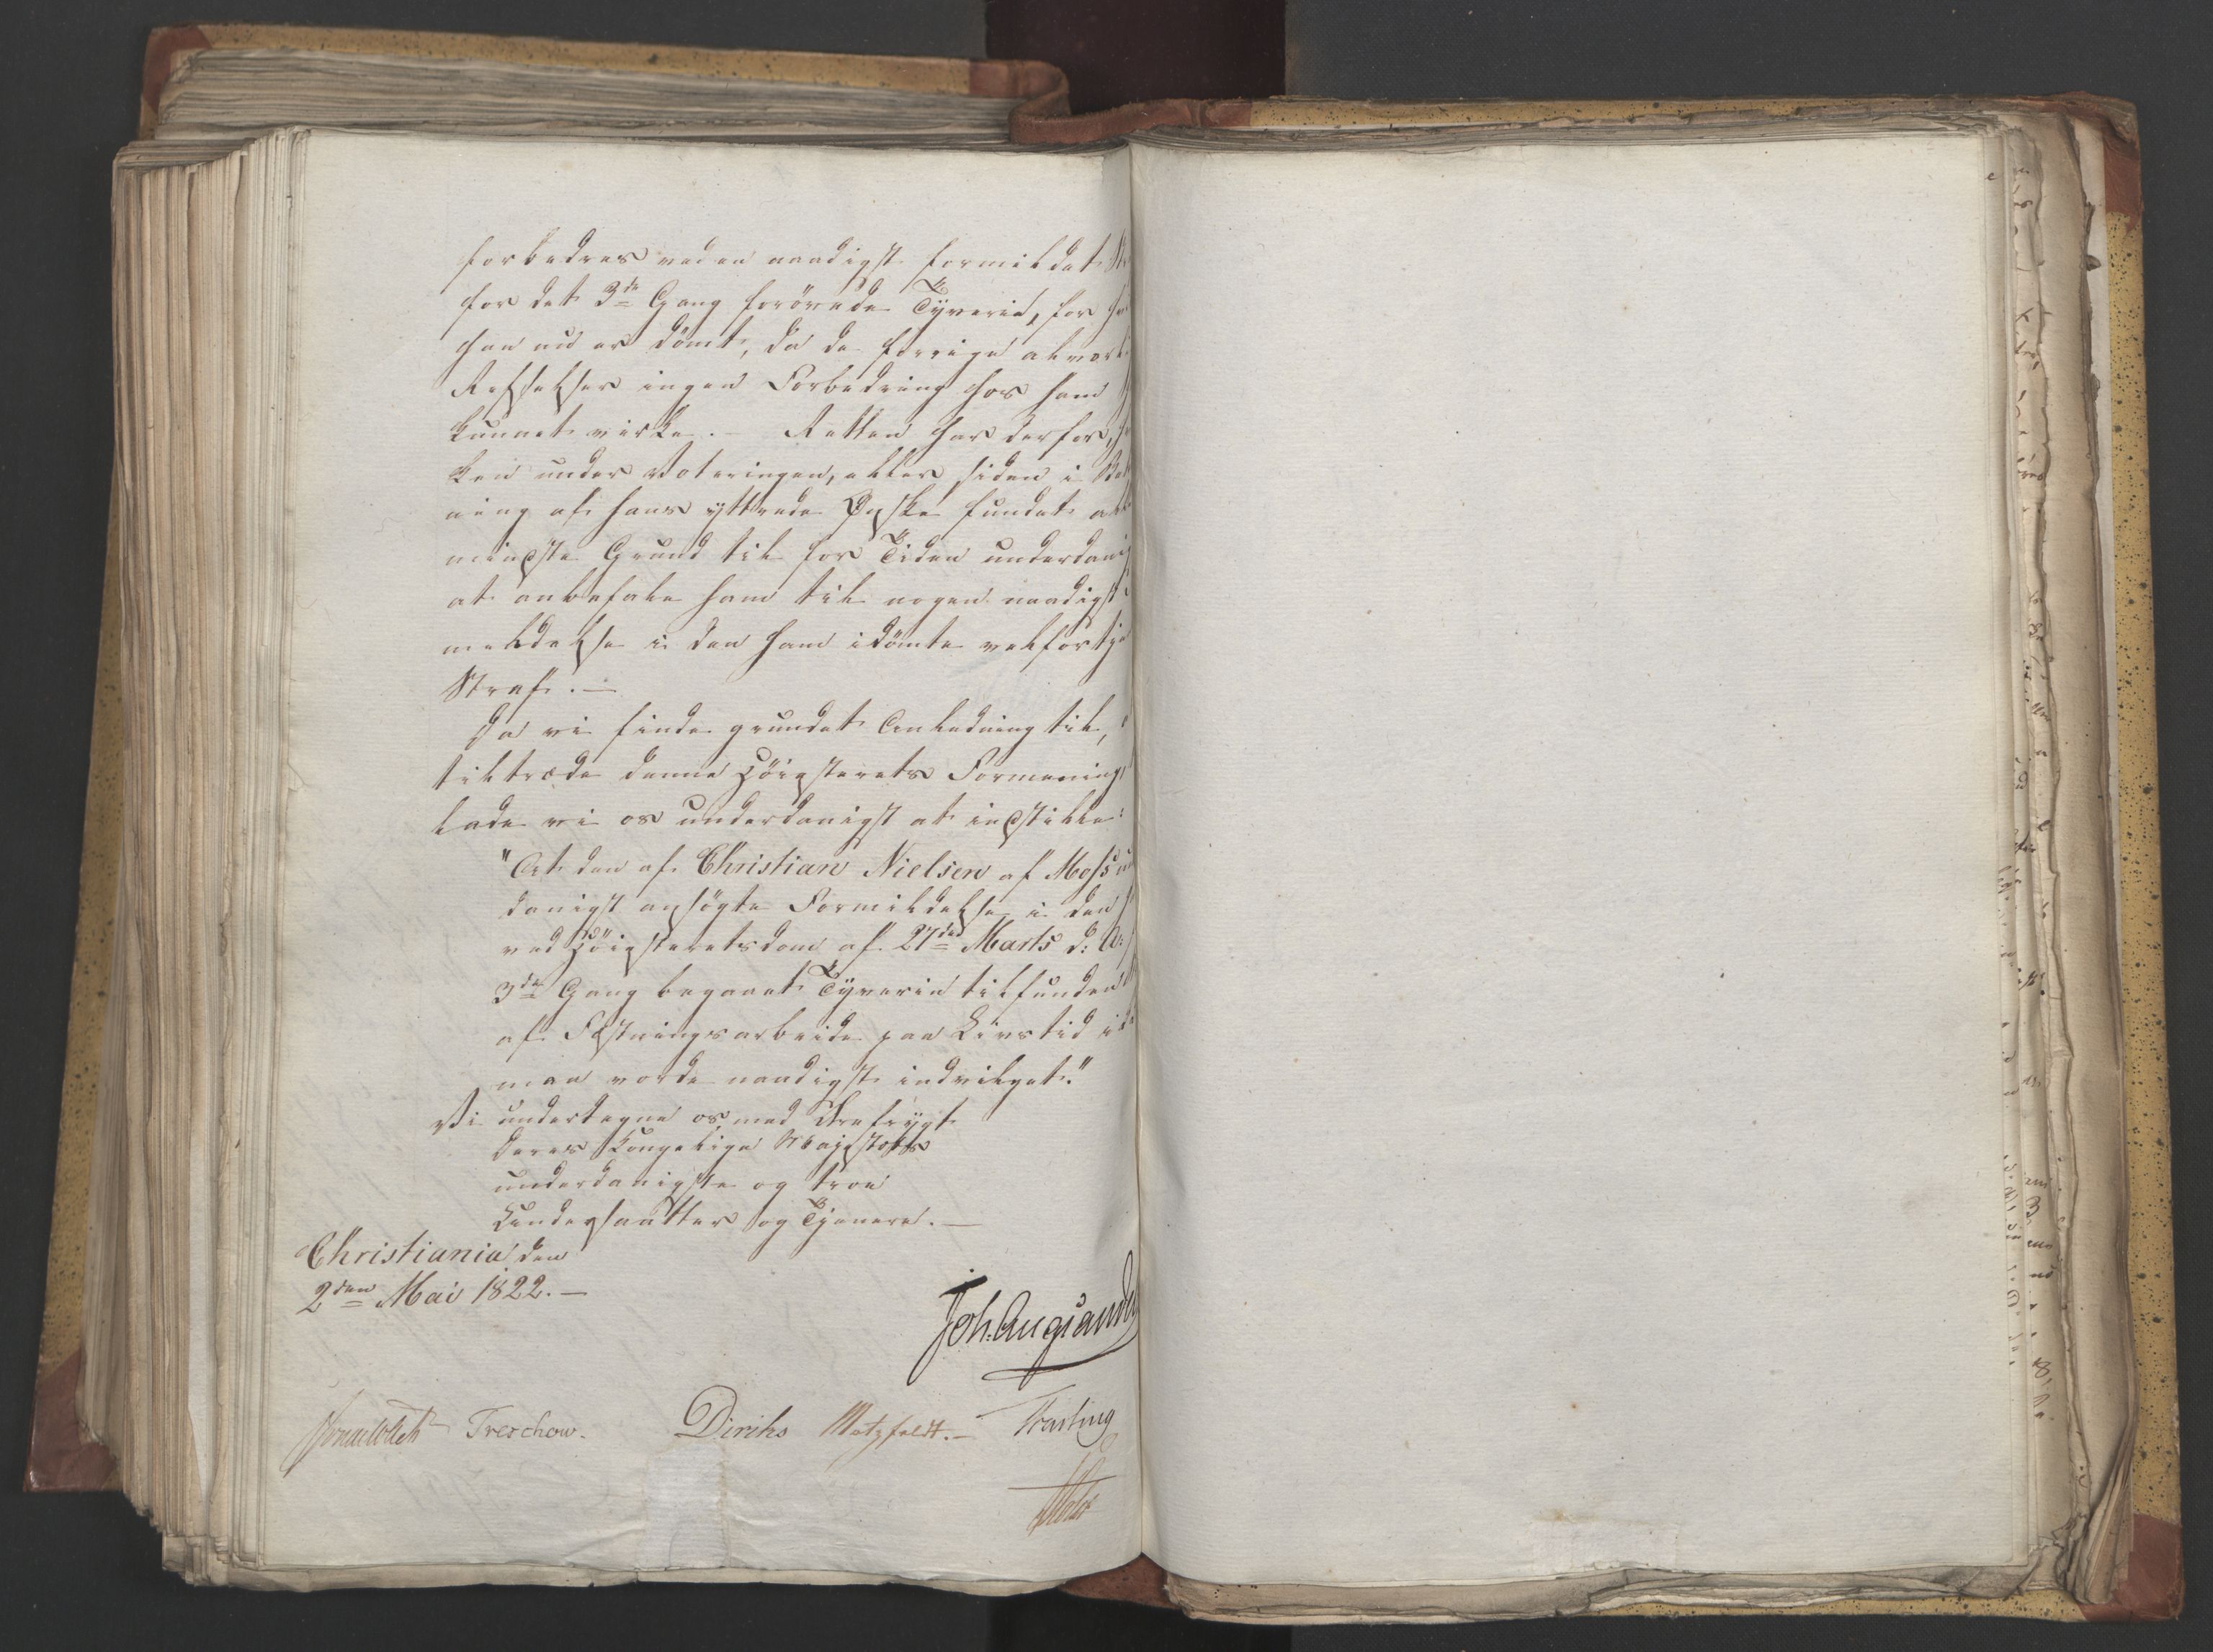 forbedres ved en naadigst formildet
for det 3de Gang forövede Tyverie, for
han nu er dömt, da de forrige alvor
Refselser ingen Forbedring hos ham
kunnet virke. – Retten har derfor,
ken under Voteringen, eller siden i
ning af hans yttrede Ønske fundet
mindste Grund til for Tiden underdanig
at anbefale ham til nogen naadigst
mildelse i den ham idömte velfortje
Straf. –
Da vi finde grundet Anledning til,
tiltræde denne Höiesterets Formening,
lade vi os underdanigst at indstille:
"At den af Christian Nielsen af Moss
danigst ansögte Formildelse i den
ved Höiesteretsdom af 27de Marts d: A:
3de Gang begaaet Tyverie tilfunden
af Fæstningsarbeide paa Livstid
maa vorde naadigst indvilget."
Vi undertegne os med Ærefrygt
Deres Kongelige Majestæts
underdanigste og troe
Undersaatter og Tjenere. –
Christiania den
2den Mai 1822. –
Joh. Aug. Sandels
Treschow. Diriks Motzfeldt. – Fasting